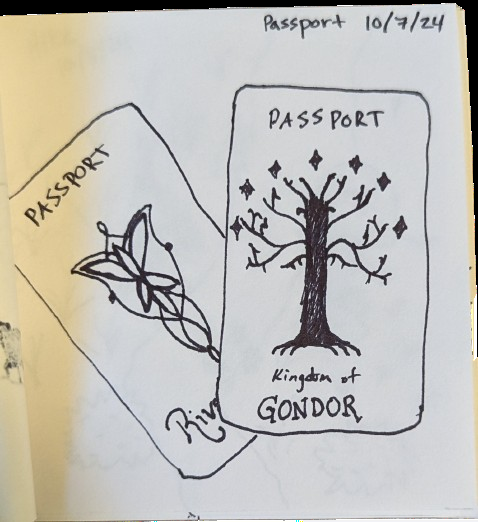 Passport 10/7/24
PASSPORT
Riv
PASSPORT
Kingdom of
GONDOR